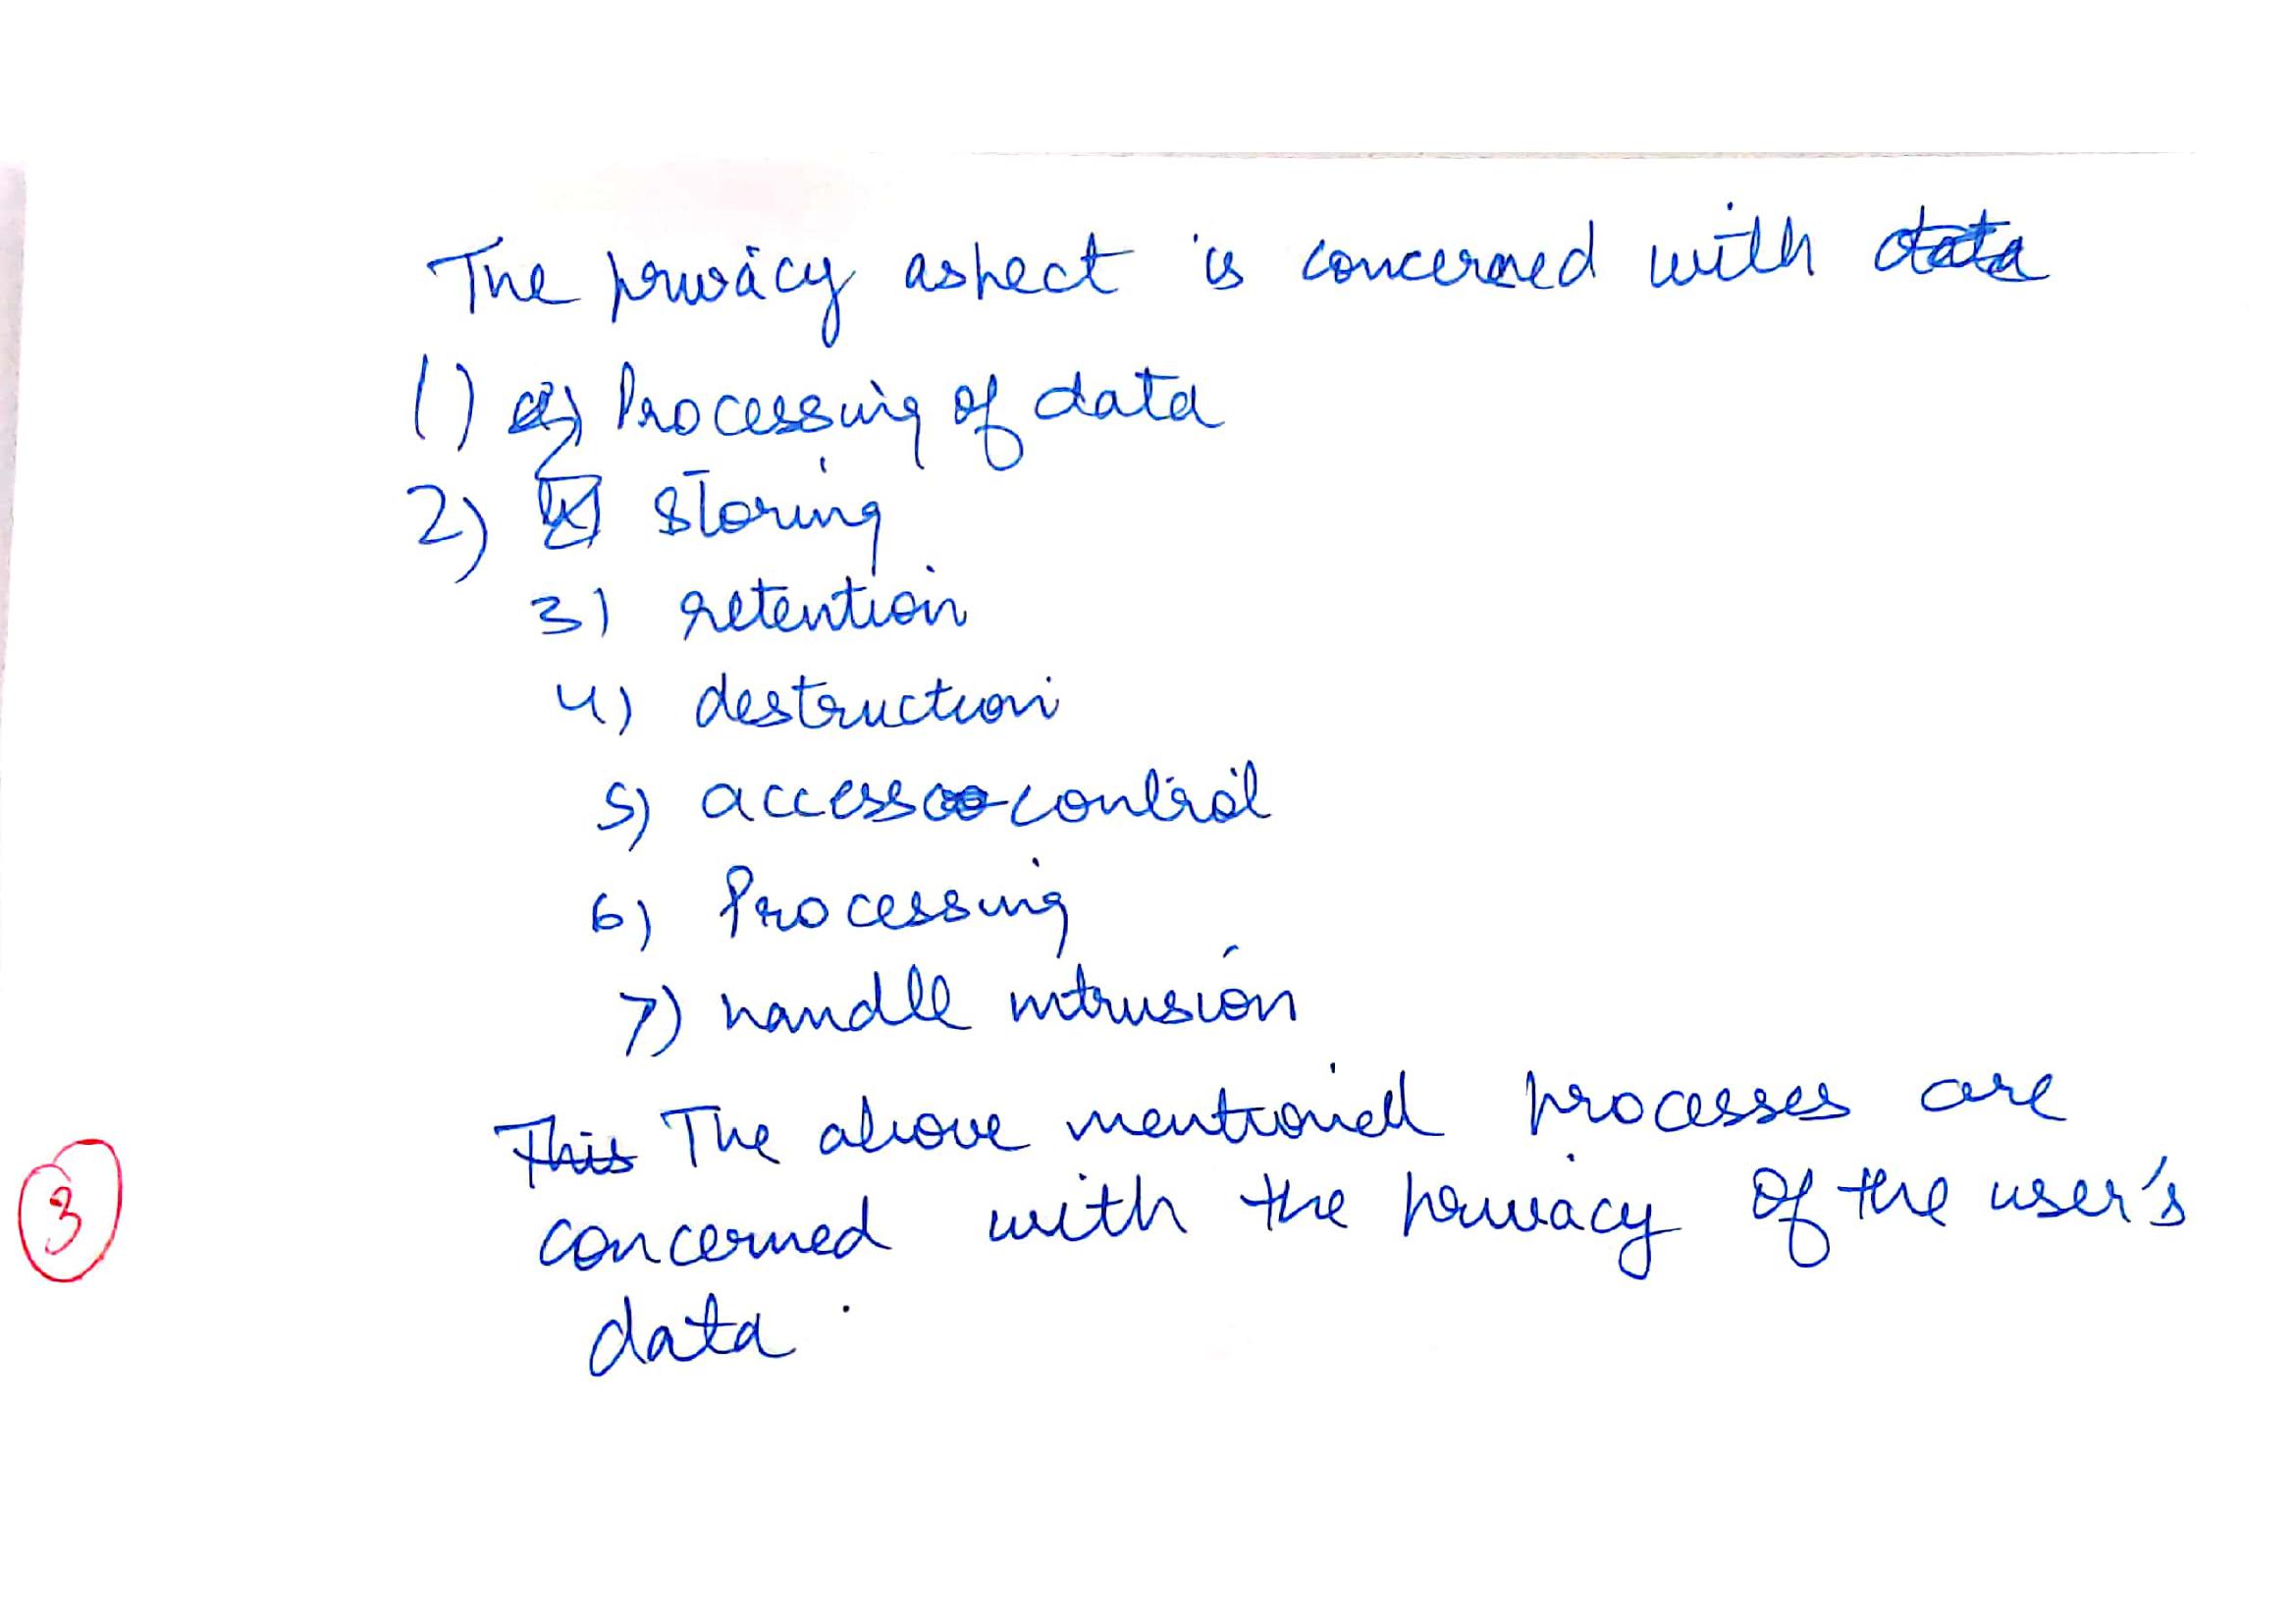 The privacy aspect is concerned with data
1) a) Processing of data
2) storing
3) retention
4) destruction
5) access control
6) Processing
7) handle intrusion
This The above mentioned processes are
3
concerned with the privacy of the user's
data.